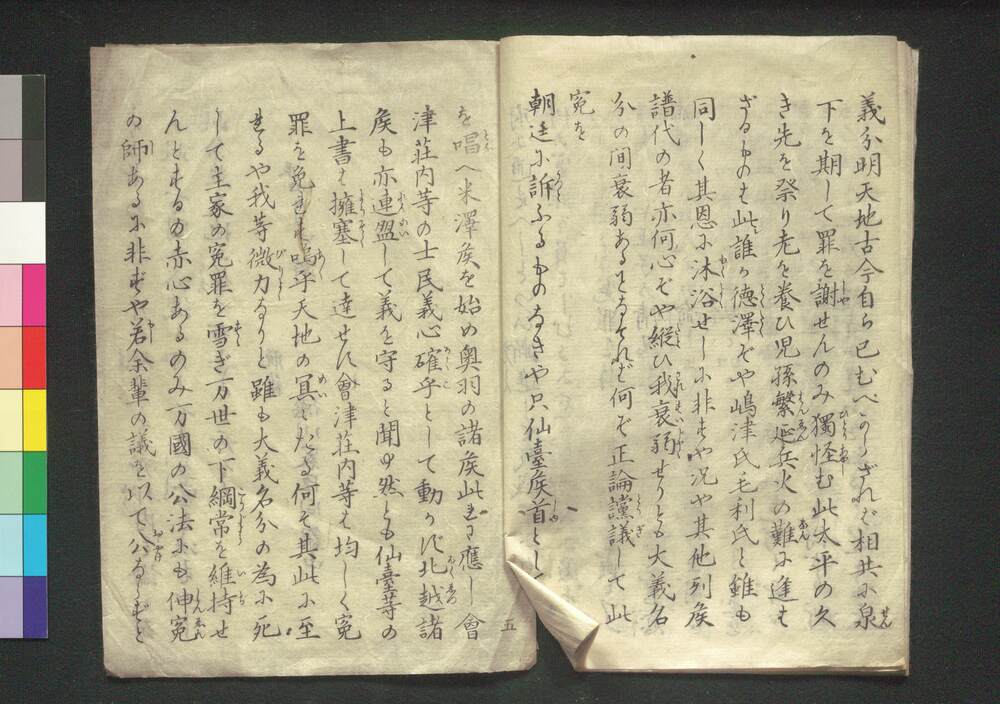 義分明天地古今自ら已むべからざれば相共に泉
下を期して罪を謝せんのみ獨怪む此太平の久
き先を祭り老を養ひ児孫繁延兵火の難に逢は
ざるものは此誰が德澤ぞや嶋津氏毛利氏と雖も
同しく其恩に沐浴せしに非すや况や其他列矦
譜代の者亦何心ぞや縦ひ我衰弱せりとも大義名
分の间衰弱あることなけれは何ぞ正論讜議して此
寃を
朝廷に訴ふるものなきや只仙臺矦首として
を唱へ米澤矦を始め奥羽の諸矦此れに應し會
津荘内等の士民義心確乎として動かず北越諸
矦も亦連盟して義を守ると聞ゆ然とも仙臺等の
上書は擁塞して達せす會津荘内等は均しく寃
罪を免れす嗚乎天地の冥々たる何そ其此に至
れるや我等微力なりと雖も大義名分の為に死
して主家の寃罪を雪ぎ万世の下綱常を維持せ
んとするの赤心あるのみ万國の公法にも伸寃
の師あるに非すや若余輩の議を以て公ならずと
五